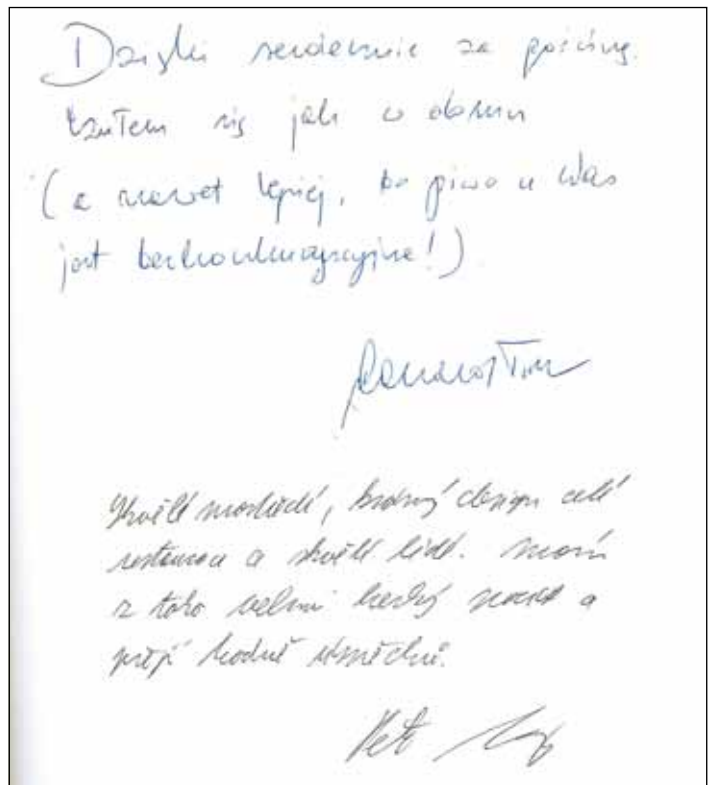 Dzięki serdecznie za gościnę.
Czułem się jak w domu
(a nawet lepiej, bo piwo u Was
jest bezkonkurencyjne!)
Skvělé prostředí, krásný design celé
restaurace a skvělí lidé. Mám
z toho velmi hezký pocit a
přeji hodně úspěchů.
Petr